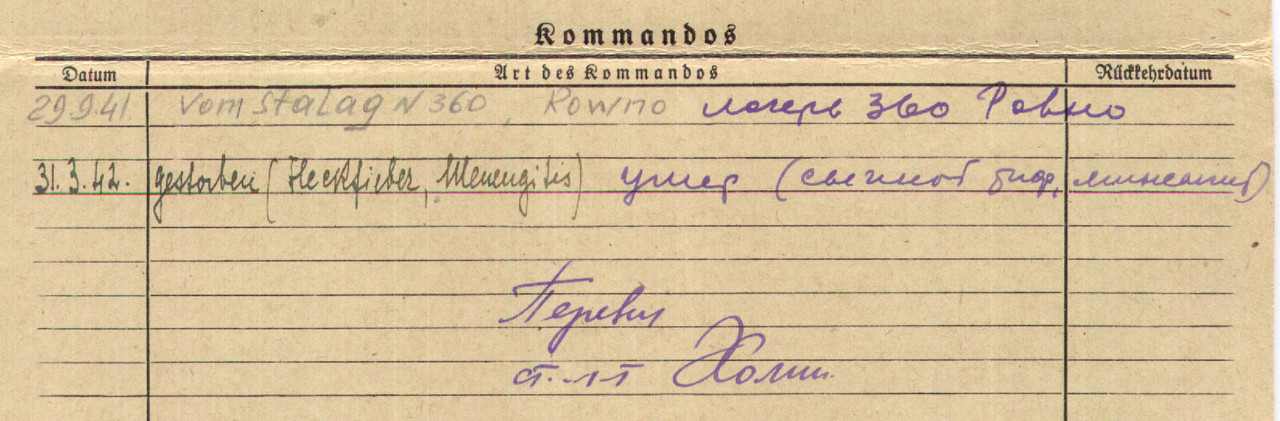 Kommandos
Datum Art des Kommandos Rückkehrdatum
29.9.41 Vom Stalag N 360, Rowno лагерь 360 Ровно
31.3.42. gestorben (Fleckfieber, Menengitis) умер (сыпной тиф, менингит)
Перевел
ст. л-т